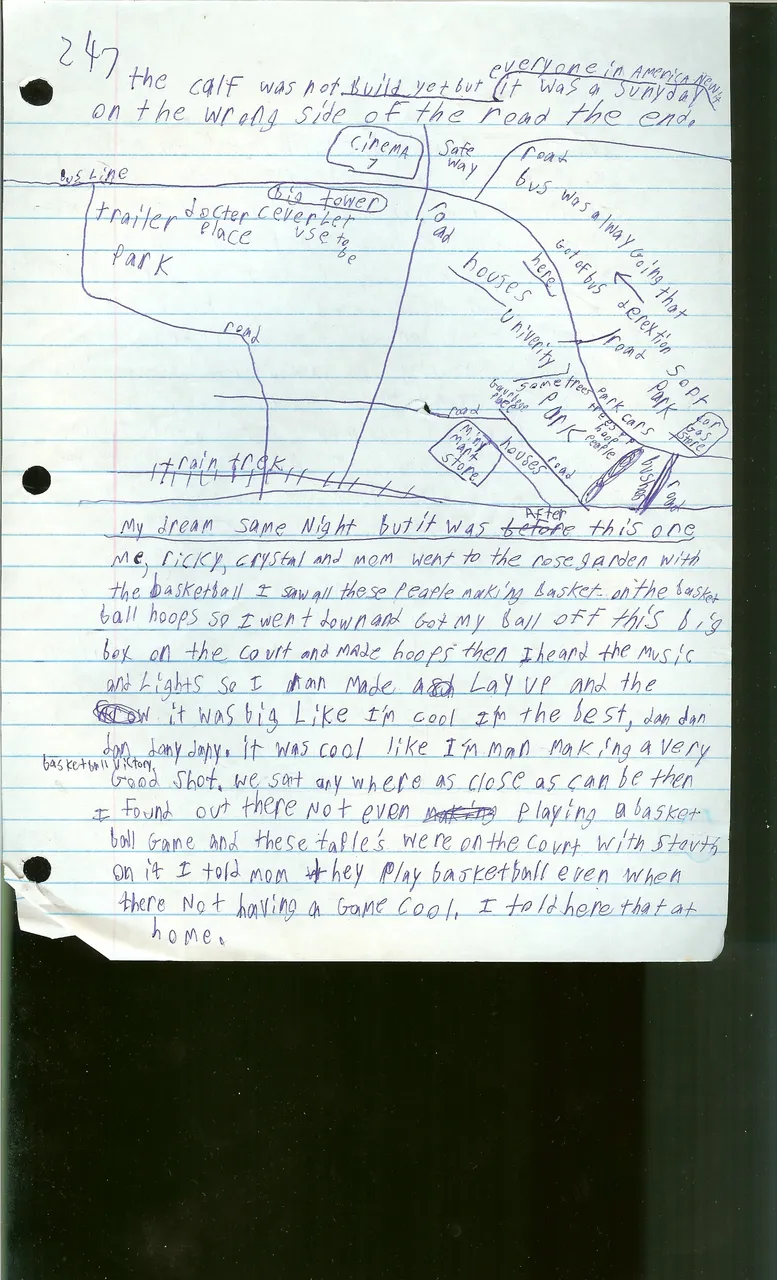 247
everyone in America New it
the calf was not build yet but it was a sunyday
on the wrong side of the road the end.
Cinema
7
Safe
way
road
bus Line
big tower
trailer docter ceverLet
place use to
be
Park
ro
ad
bus was always Going that
derextion
Got of bus
here
houses
univerity
road
road
Sort
Park
some trees
Park
Park cars
trees
hoop
People
For
Gas
store
road
Miny
mart
store
houses
road
road
train trek
My dream same Night but it was before After this one
Me, ricky, crystal and mom went to the rose garden with
the basketball I saw all these People making Basket on the basket
ball hoops so I went down and Got my Ball off this big
box on the court and made hoops then I heard the music
and Lights so I ran made a Lay up and the
it was big Like I'm cool I'm the best, dan dan
dan dany dany. it was cool like I'm man making a very
basketball victory
Good shot. we sat any where as close as can be then
I found out there Not even making Playing a basket
ball Game and these table's were on the court with stauth
on it I told mom they Play basketball even when
there Not having a Game Cool. I told here that at
home.